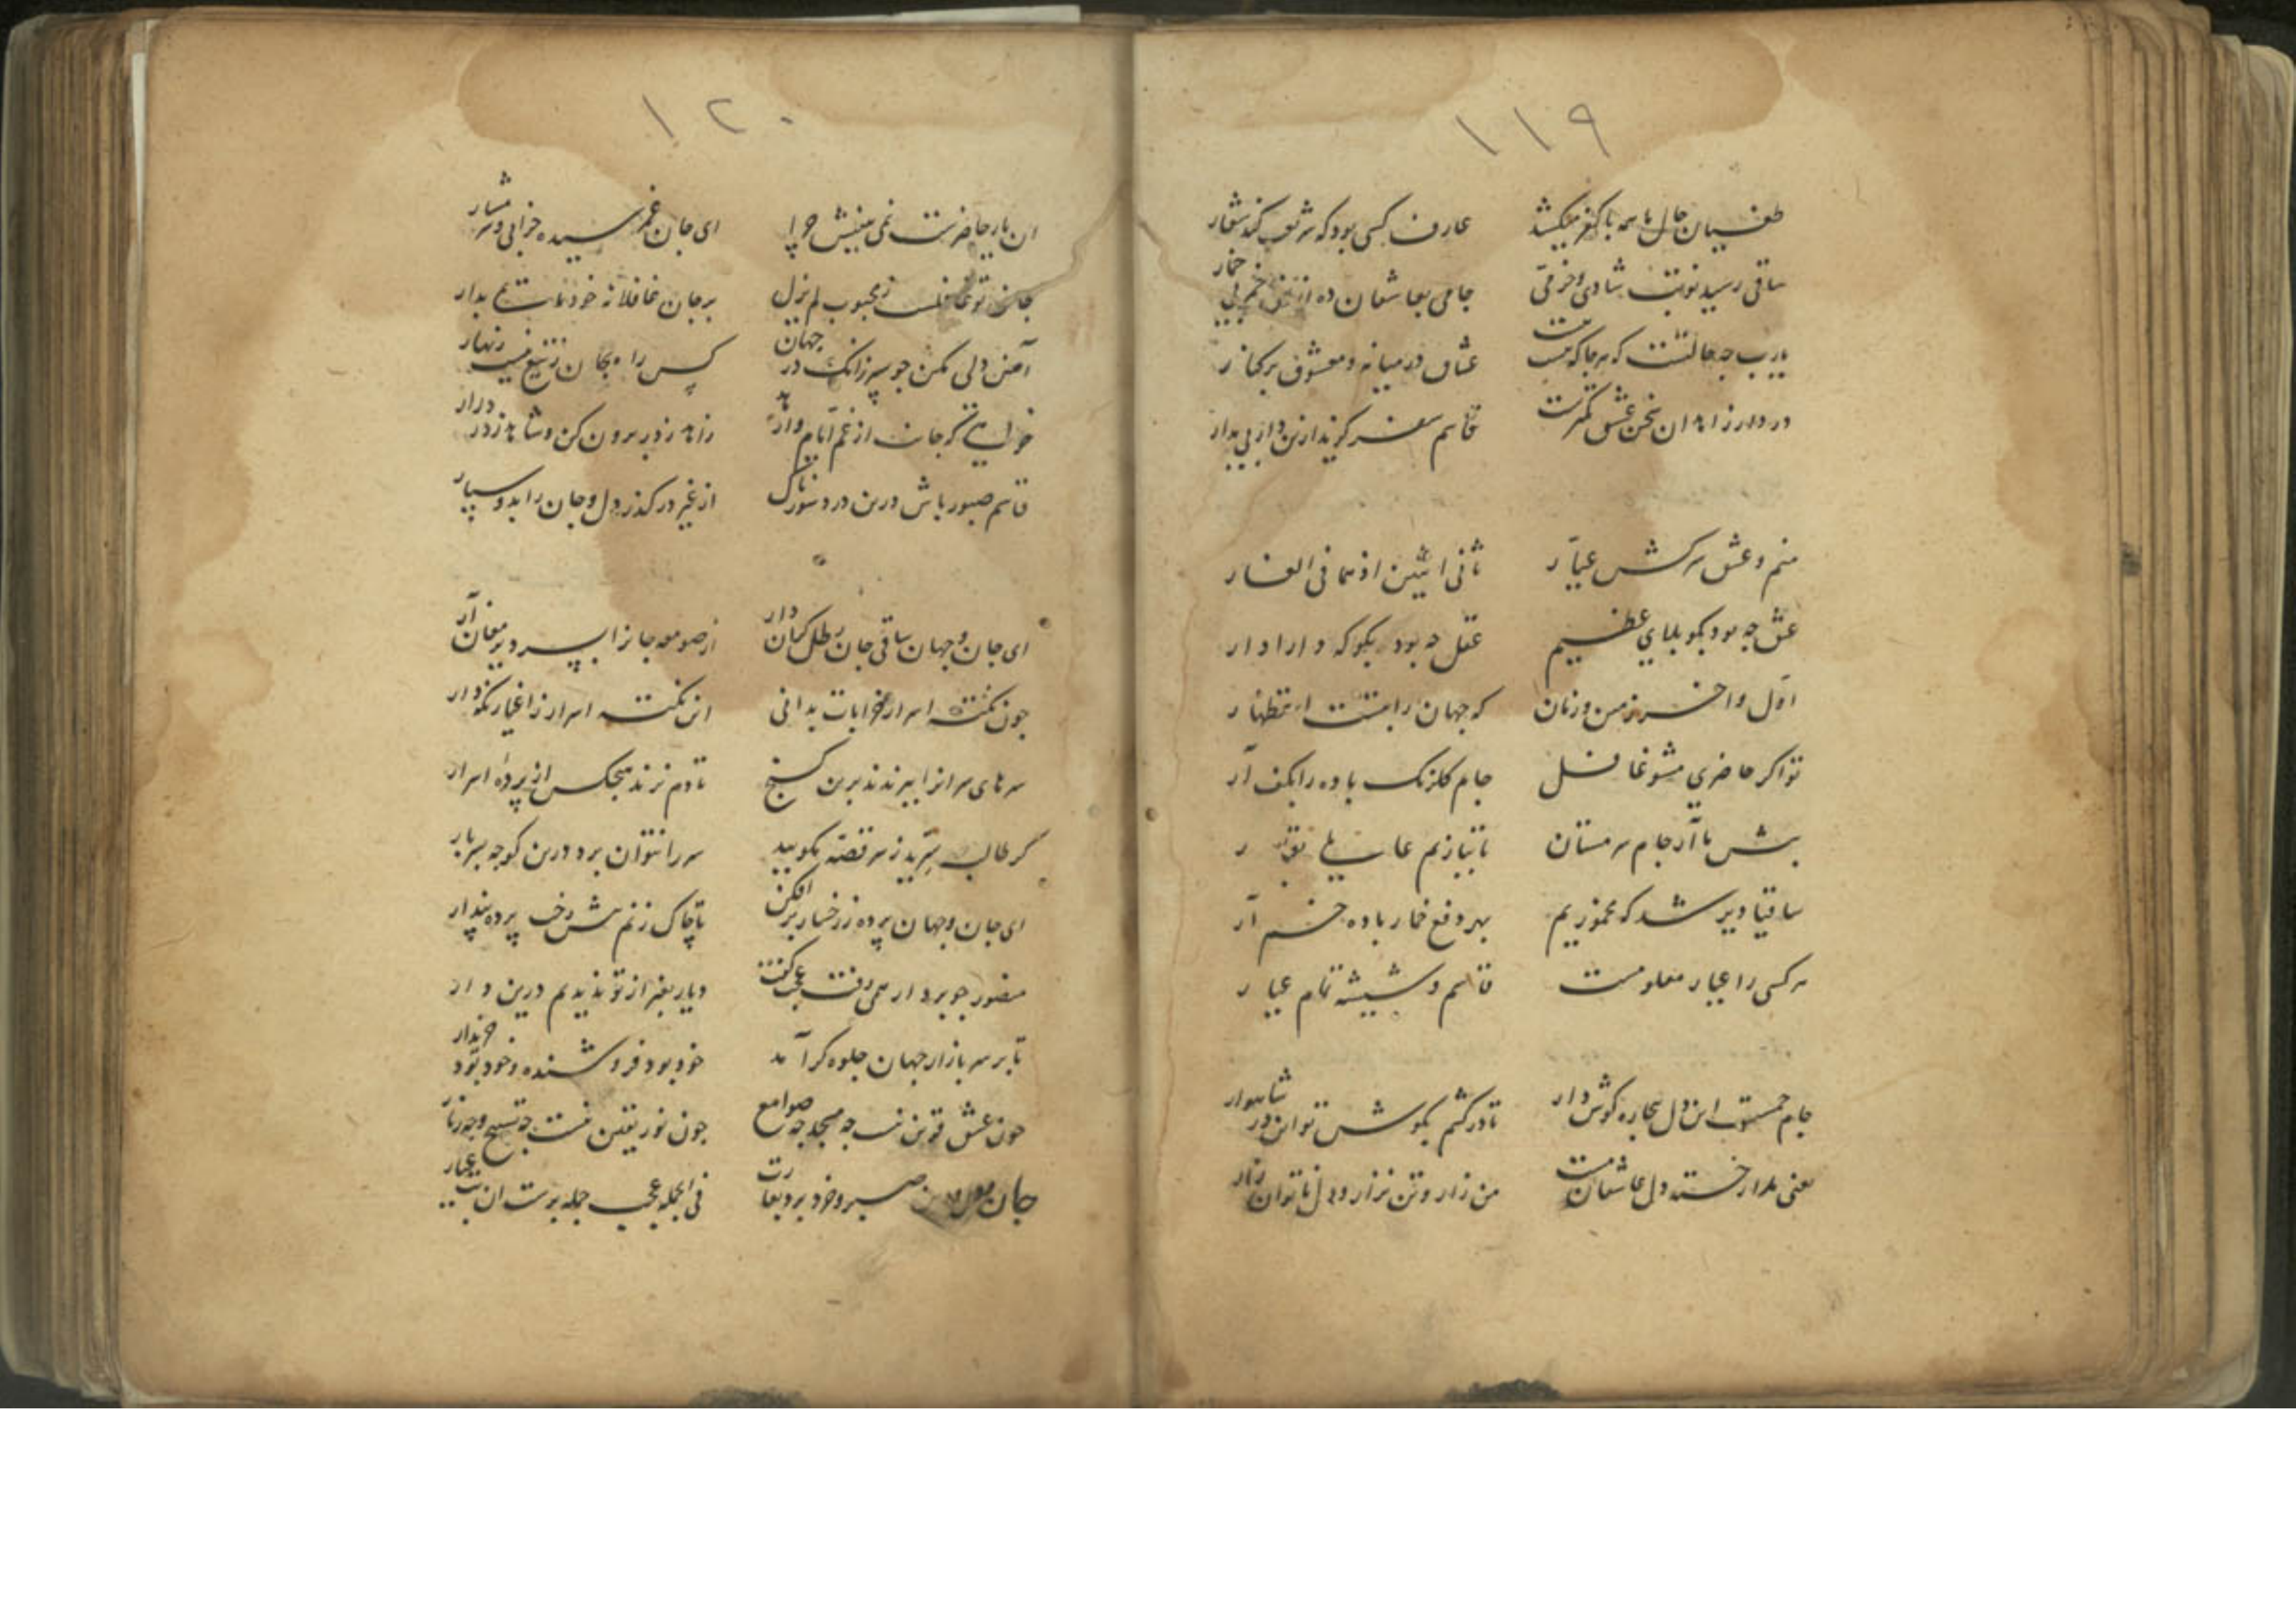 ١١٩
طغیان حال ما همه با کفر میکشد عارف کسی بود که شریعت کند شعار
ساقی رسید نوبت شادی و خرمی جامی بعاشقان ده از خم بی خمار
یارب چه حالتست که هر جا که هست عشاق در میانه و معشوق برکنار
در دار زاهدان سخن عشق کمترست قاسم سفر گزید ازین دار بی مدار
منم و عشق سرکش عیّار ثانی اثنین اذ هما فی الغار
عشق چه بود بگو بلای عظیم عقل چه بود بگو که دارادار
اوّل و آخر زمین و زمان که جهان را بتست استظهار
تو اگر حاضری مشو غافل جام گلرنگ باده را بکف آر
پیش ما آر جام سرمستان تا ببازیم
ساقیا دیر شد که مخموریم بهر دفع خمار باده آر
هر کسی را عیار معلومست قاسم و شیشه تمام عیار
جام این دل بیچاره گوش دار تا درکشم بگوش تو این در شاهوار
یعنی مدار خسته دل عاشقان مست من زار و تن نزار و دل ناتوان زار
١٢٠
ان یار حاضرست نمی بینیش چرا ای جان غم رسیده خرابی و شرمسار
جانی تو غافلست ز محبوب لم یزل بر جان غافلانه خود ماتم بدار
آهن دلی مکن چو سپر زانک در جهان کس را بجان ز تیغ نیست زنهار
خواهی که جانت از غم ایام وارهد زاهد ز در برون کن و شاهد ز در درار
قاسم صبور باش درین درد سوزناک از غیر درگذر دل و جان را بدو سپار
ای جان و جهان ساقی جان رطل گران دار از صومعه جانرا بسر دیر مغان آر
چون نکته اسرار خرابات بدانی این نکته اسرار ز اغیار نگه دار
سرهای سرانرا ببرندند برین گنج تا دم نزند هیچکس از پرده اسرار
گر طالب سرّید ز سر قصّه مگویید سر را نتوان برد درین کوچه بسربار
ای جان و جهان پرده ز رخسار برافکن تا چاک زنم پیش رخت پرده پندار
منصور چو بردار همی رفت عجب گفت دیار بغیر از تو ندیدیم درین دار
تا بر سر بازار جهان جلوه گر آمد خود بود فروشنده و خود بود خریدار
چون عشق قرین نیست چه مسجد چه صوامع چون نور یقین نیست چه تسبیح و چه زنار
جان و دل و دین صبر و خرد برد بغارت فی الجمله عجب جمله برست ان بت عیار